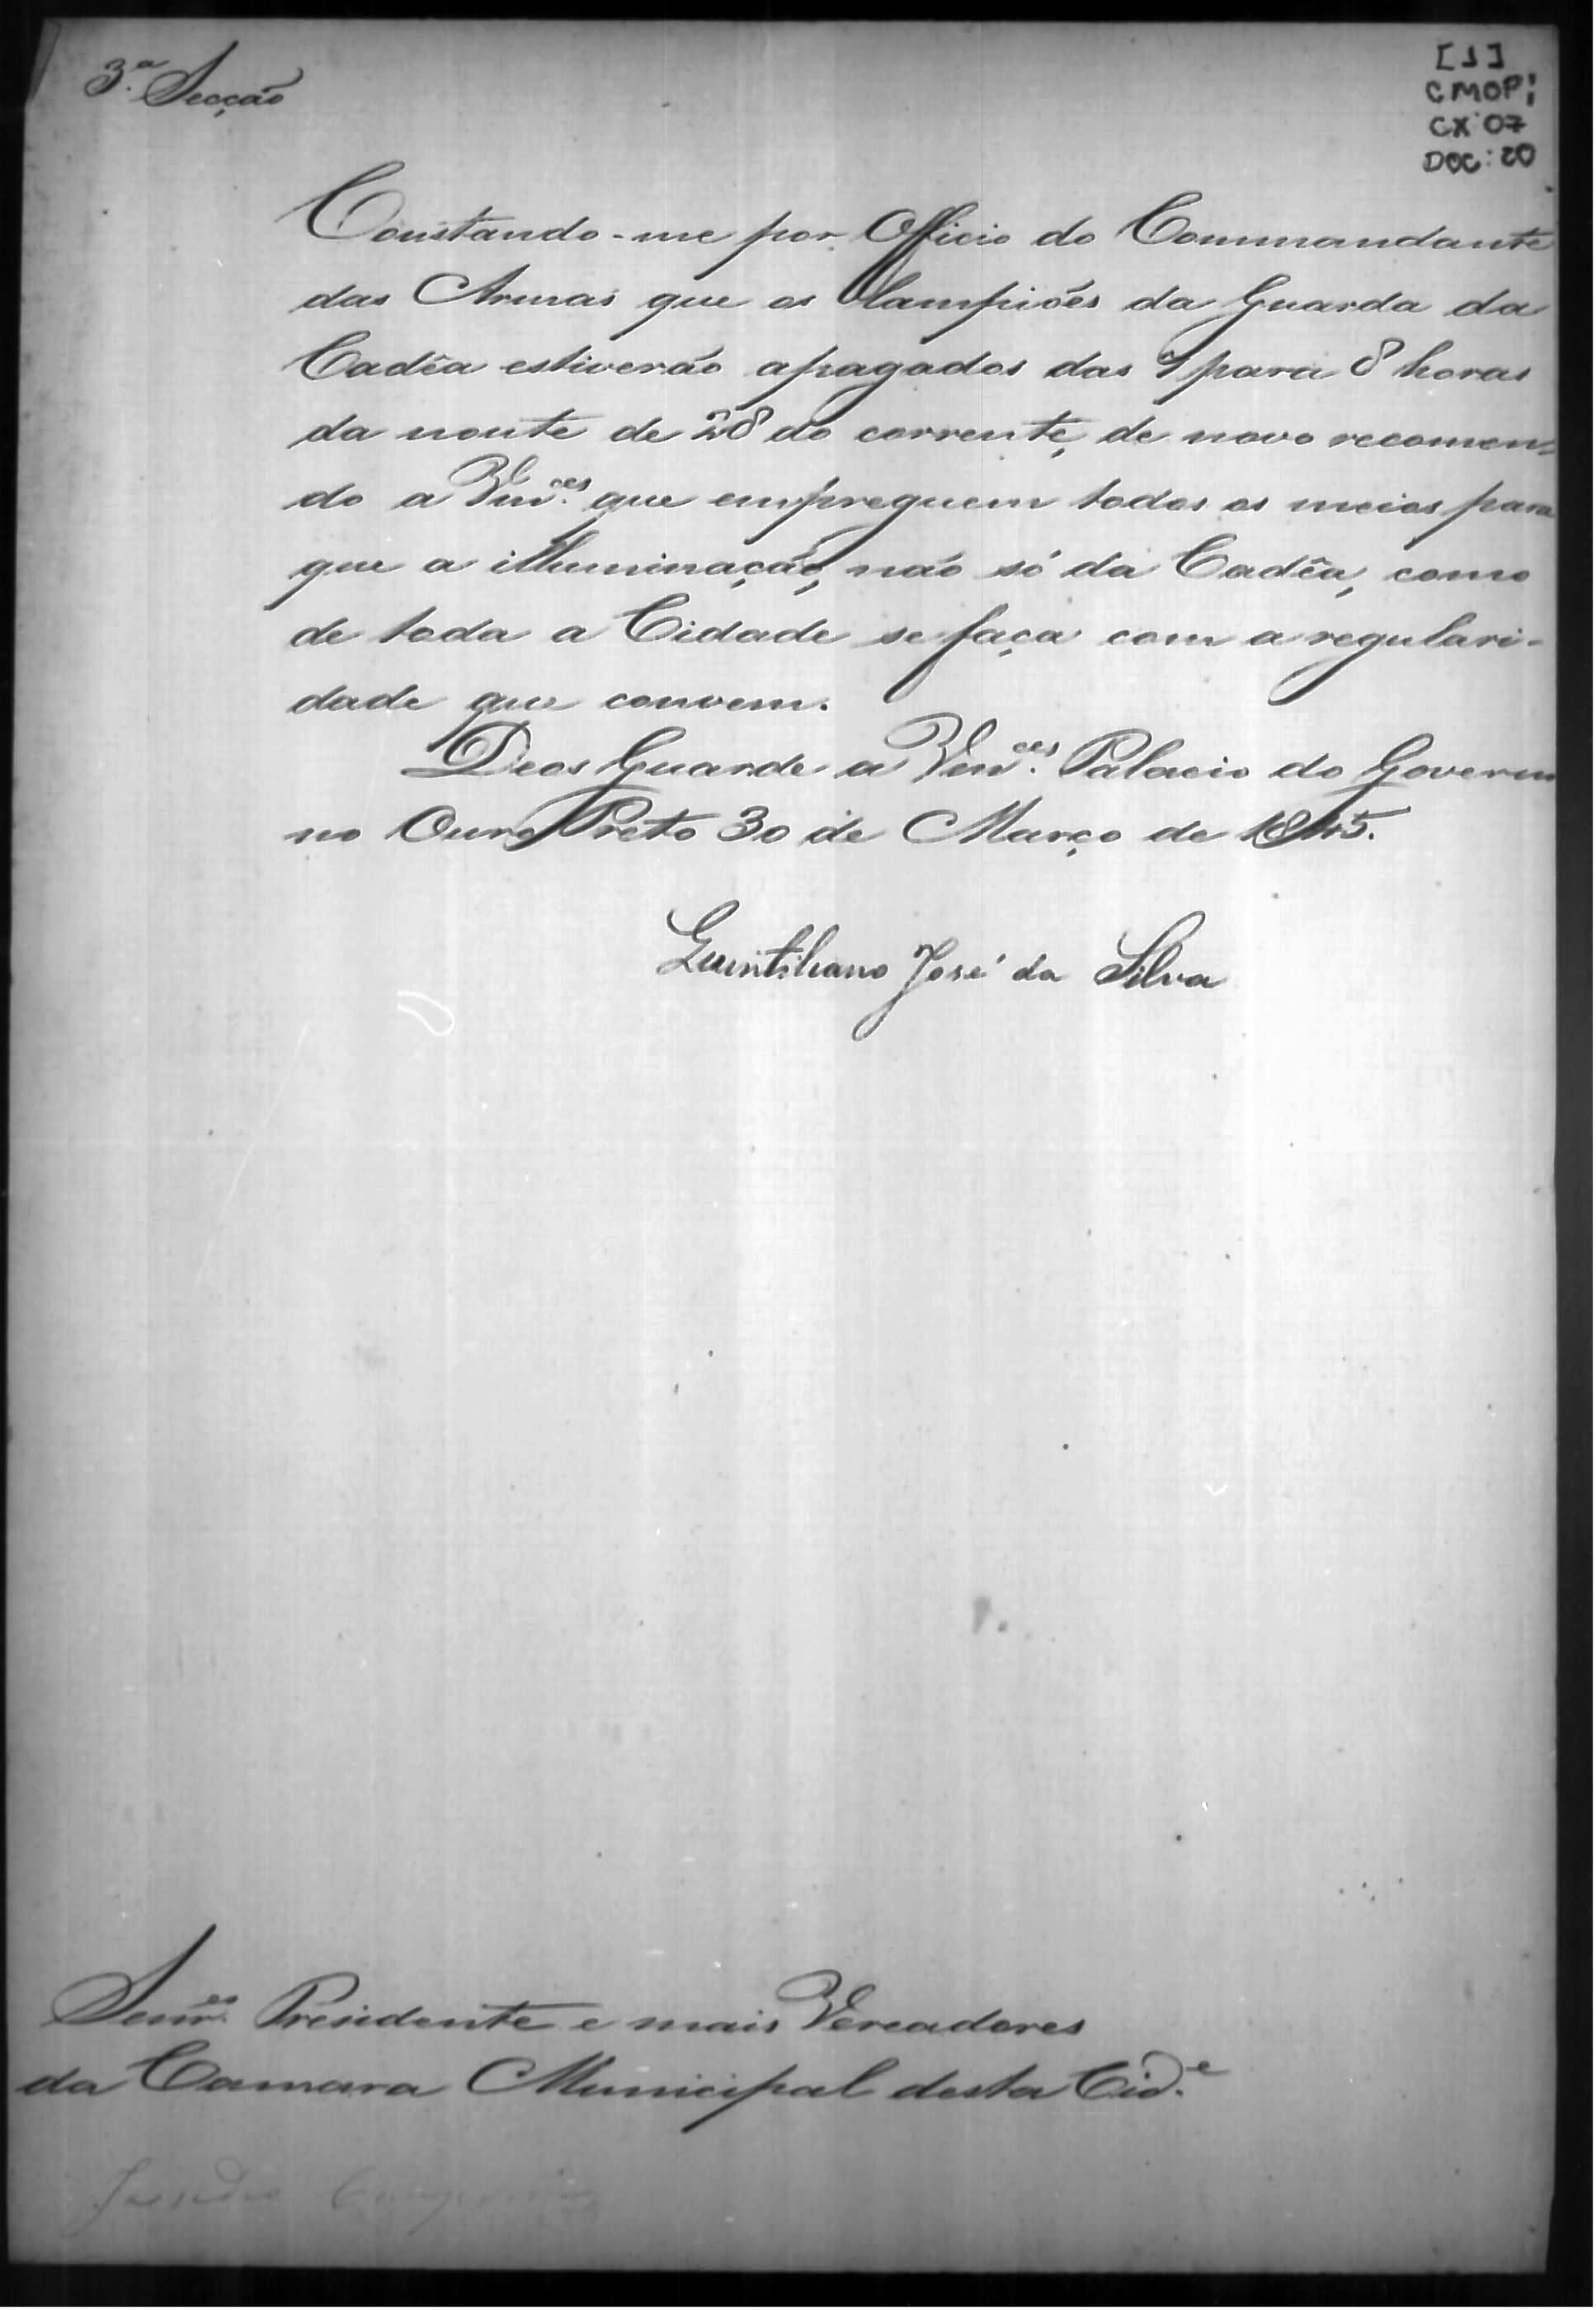 3.ª Secção
[1]
CMOP;
CX 07
DOC: 20
Constando-me por Officio do Commandante
das Armas que os lampiões da Guarda da
Cadêa estiverão apagados das 7 para 8 horas
da noute de 28 do corrente, de novo recomen-
do a Vm.ces que empreguem todos os meios para
que a illuminação, não só da Cadêa, como
de toda a Cidade se faça com a regulari-
dade que convem.
Deos Guarde a Vm.ces Palacio do Governo
no Ouro Preto 30 de Março de 1845.
Quintiliano José da Silva
Senr.es Presidente e mais Vereadores
da Camara Municipal desta Cid.e